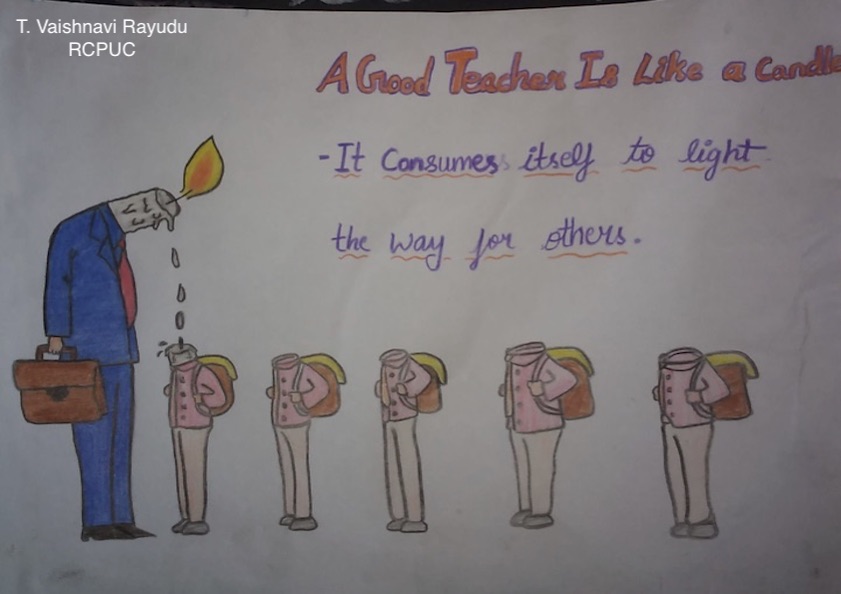 T. Vaishnavi Rayudu
RCPUC
A Good Teacher Is Like a Candle
- It Consumes itself to light
the way for others.